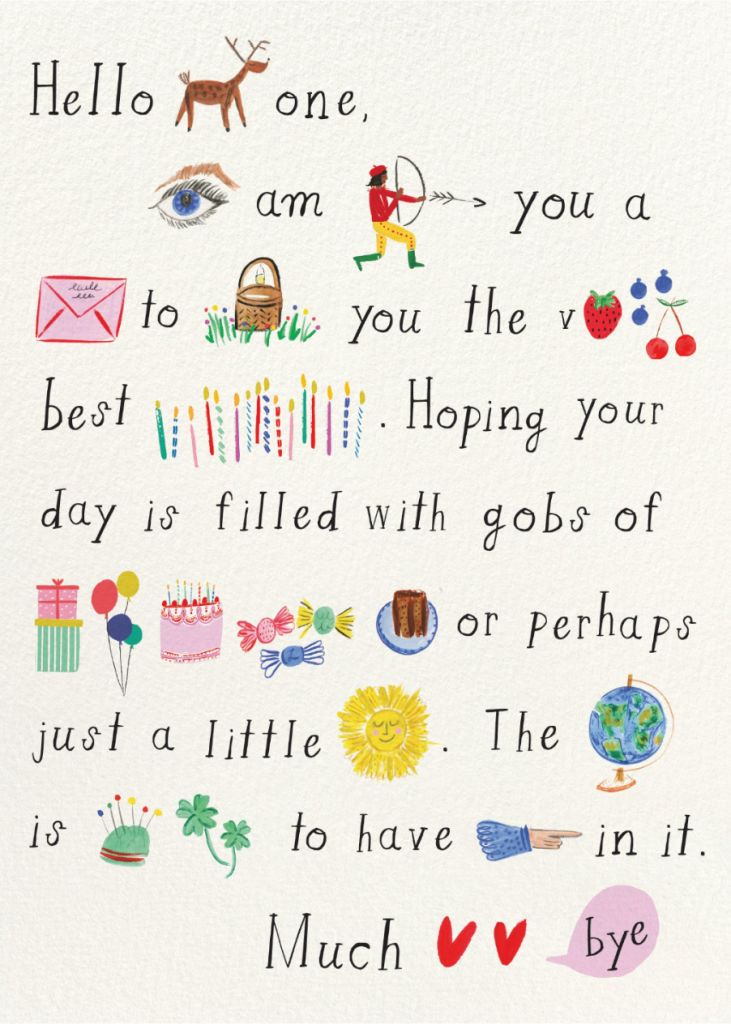 Hello one,
am you a
to you the v
best . Hoping your
day is filled with gobs of
or perhaps
just a little . The
is to have in it.
Much bye